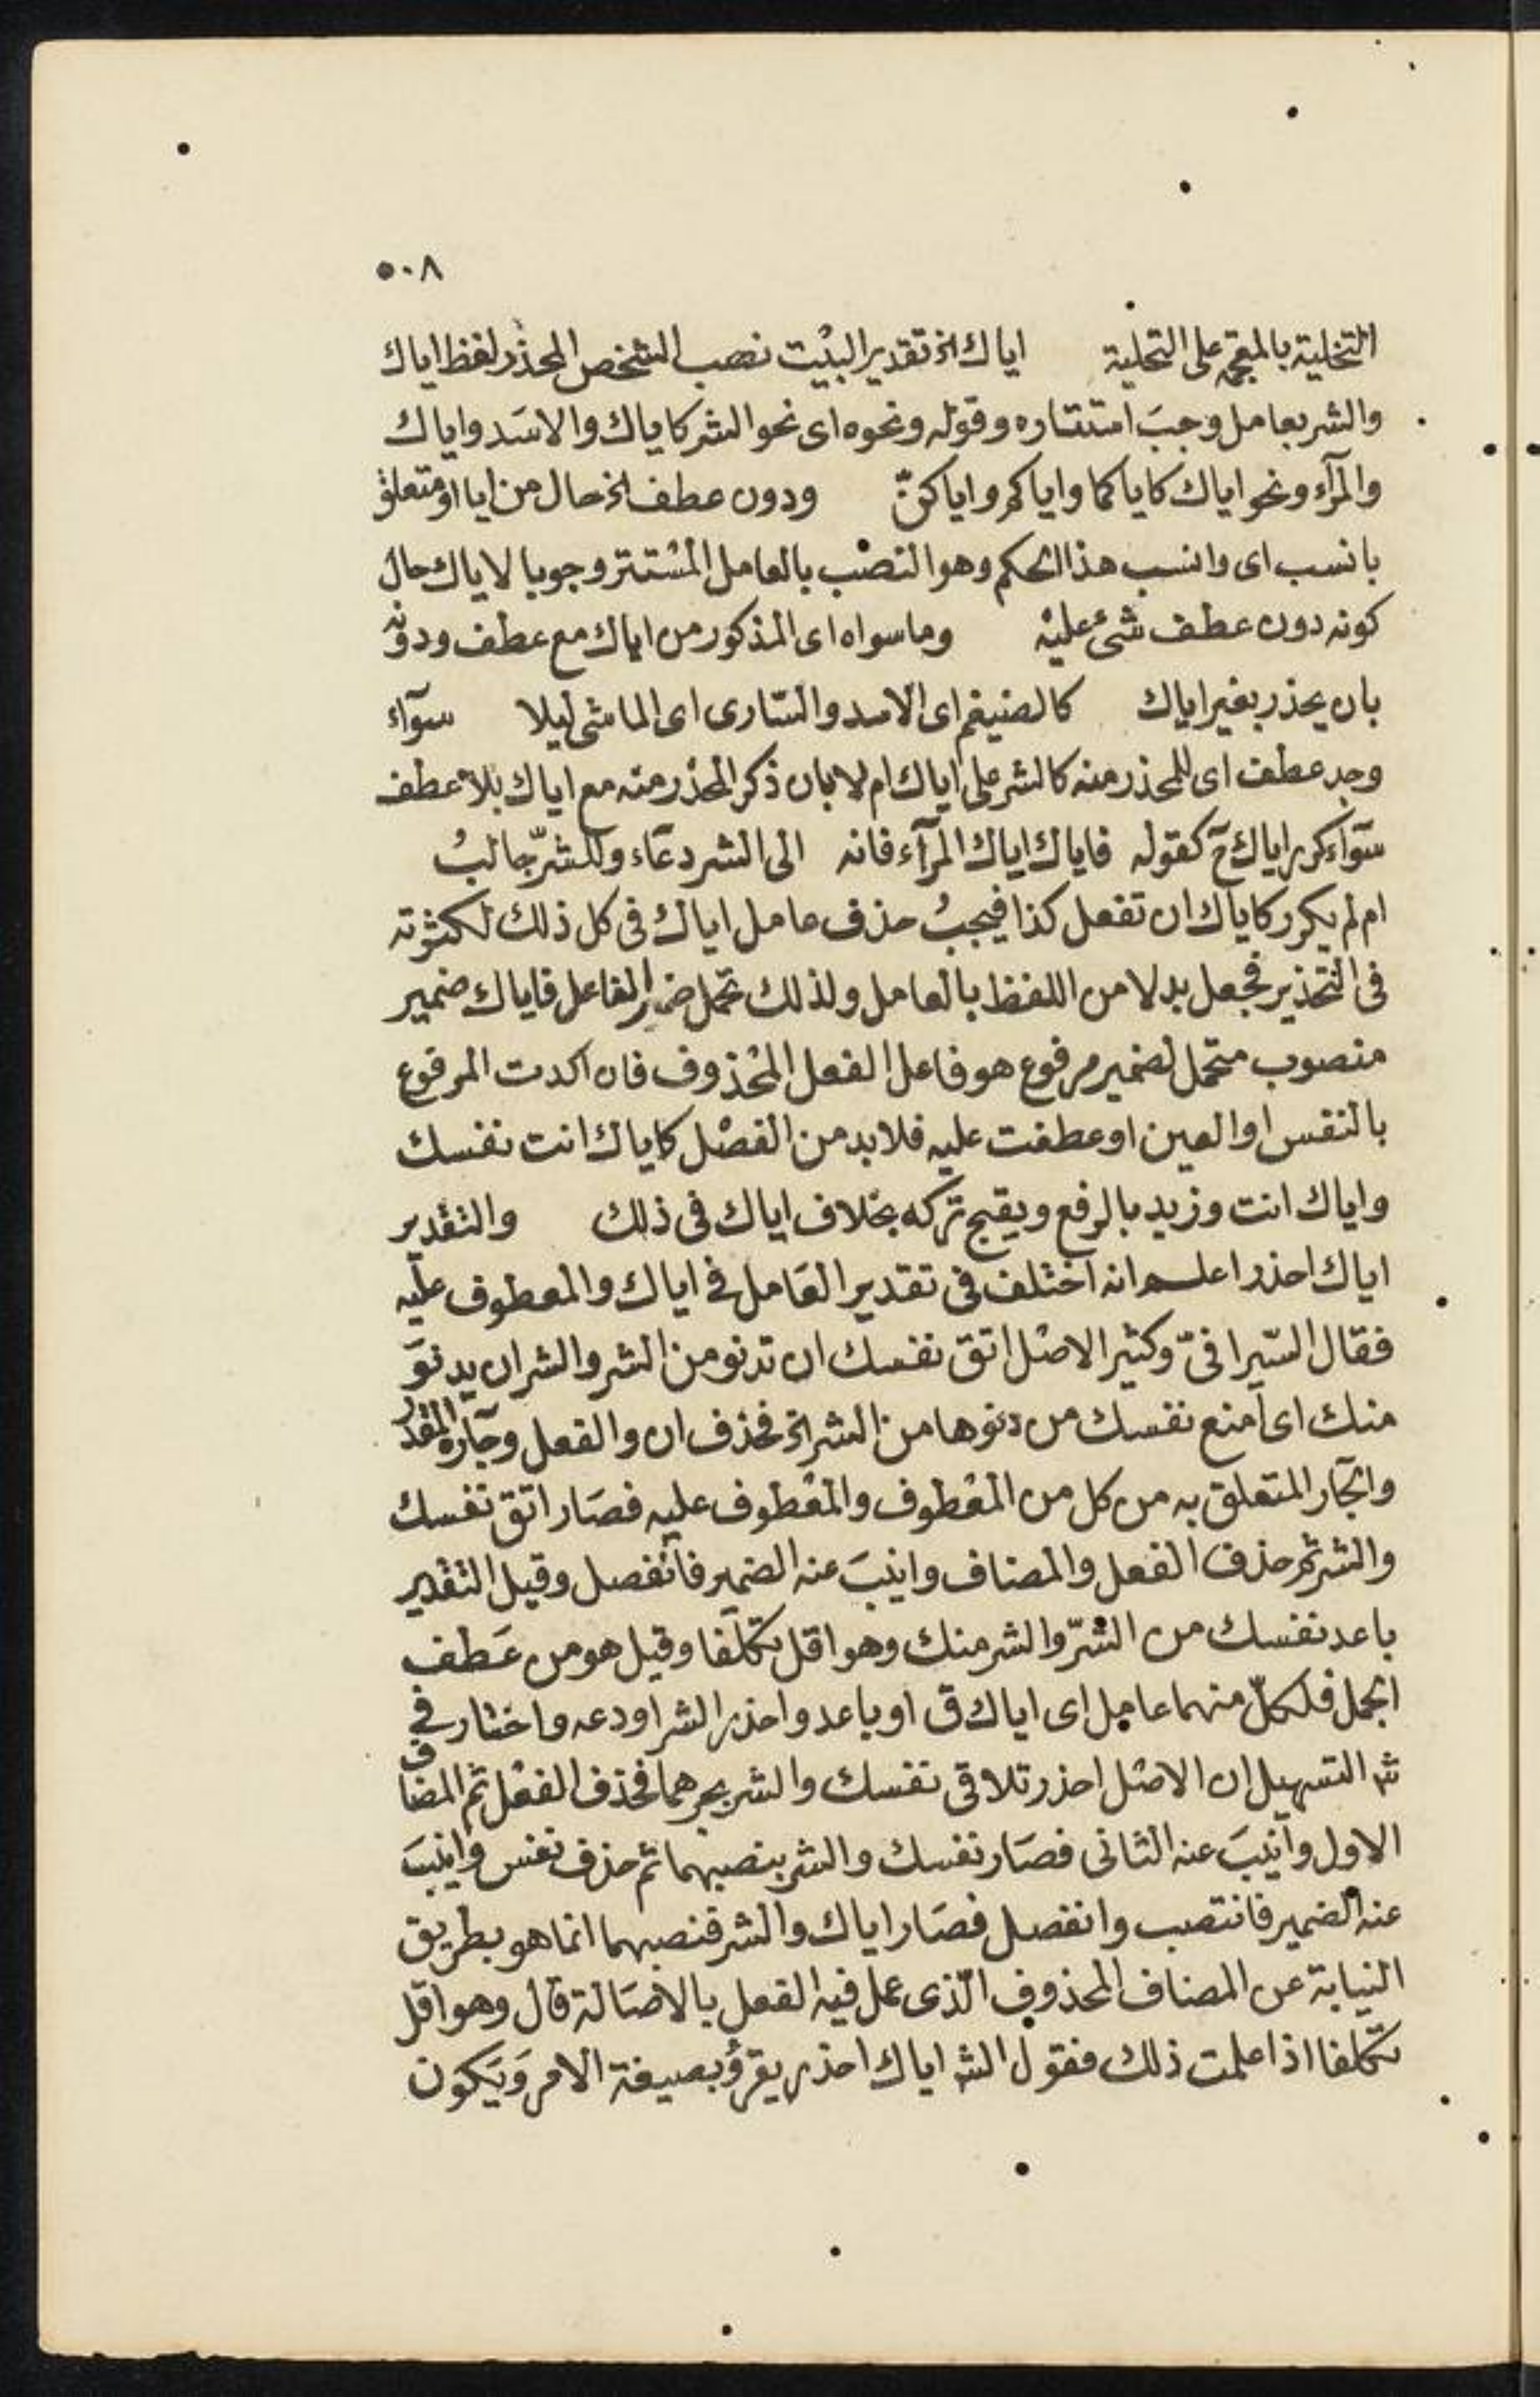 ٥٠٨
التخلية بالمعجمة على التحلية اياك الخ تقدير البيت نصب الشخص المحذر لفظ اياك
والشر بعامل وجب استتاره وقوله ونحوه اى نحو الشر كاياك والاسد واياك
والمرآء ونحو اياك كاياكما واياكم واياكنّ ودون عطف الخ حال من ايا او متعلق
بانسب اى وانسب هذا الحكم وهو النصب بالعامل المستتر وجوبا لاياك حال
كونه دون عطف شئ عليه وما سواه اى المذكور من اياك مع عطف ودونه
بان يحذر بغير اياك كالضيغم اى الاسد والسّارى اى الماشى ليلا سوآء
وجد عطف اى للمحذر منه كالشر على اياك ام لا بان ذكر المحذر منه مع اياك بلا عطف
سوآء كرر اياك ح كقوله فاياك اياك المرآء فانه الى الشر دعآء وللشرّ جالبُ
ام لم يكرر كاياك ان تفعل كذا فيجبُ حذف عامل اياك فى كل ذلك لكثرته
فى التحذير فجعل بدلا من اللفظ بالعامل ولذلك تحمل ضمير الفاعل فاياك ضمير
منصوب متحمل لضمير مرفوع هو فاعل الفعل المحذوف فان اكدت المرفوع
بالنفس او العين او عطفت عليه فلا بد من الفصل كاياك انت نفسك
واياك انت وزيد بالرفع ويقبح تركه بخلاف اياك فى ذلك والتقدير
اياك احذر اعلم انه اختلف فى تقدير العامل فى اياك والمعطوف عليه
فقال السّيرافىّ وكثير الاصل اتق نفسك ان تدنو من الشر والشر ان يدنوَ
منك اى امنع نفسك من دنوها من الشر الخ فحذف ان والفعل وجآره المقدر
والجآر المتعلق به من كل من المعطوف والمعطوف عليه فصار اتق نفسك
والشر ثم حذف الفعل والمضاف وانيبَ عنه الضمير فانفصل وقيل التقدير
باعد نفسك من الشرّ والشر منك وهو اقل تكلفا وقيل هو من عَطف
الجمل فلكلّ منهما عامل اى اياك ق او باعد واحذر الشر او دعه واختار فى
شر التسهيل ان الاصل احذر تلاقى نفسك والشر بجرهما فحذف الفعل ثم المضاف
الاول وانيبَ عنه الثانى فصَار نفسك والشر بنصبهما ثم حذف نفس وانيبَ
عنه الضمير فانتصب وانفصل فصَار اياك والشر فنصبهما انما هو بطريق
النيابة عن المضاف المحذوف الّذى عمل فيه الفعل بالاصَالة قال وهو اقل
تكلفا اذا علمت ذلك فقول الشر اياك احذر يقرؤ بصيغة الامر وَيَكون